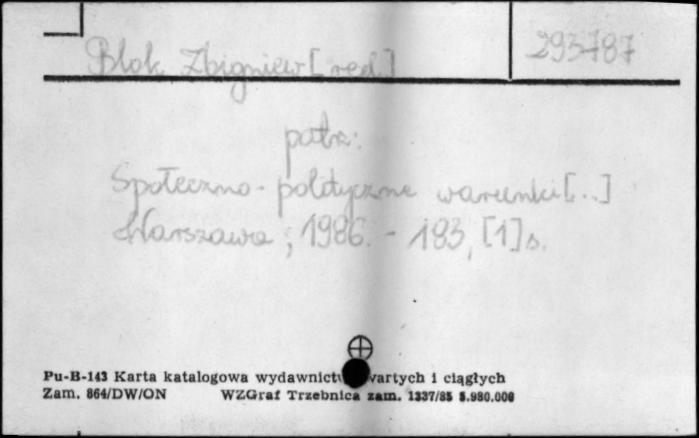 Blok Zbigniew [red.] 293787
patrz:
Społeczno-polityczne warunki [...]
Warszawa, 1986. - 183, [1] s.
Pu-B-143 Karta katalogowa wydawnictw zwartych i ciągłych
Zam. 864/DW/ON WZGraf Trzebnica zam. 1337/85 5.980.000